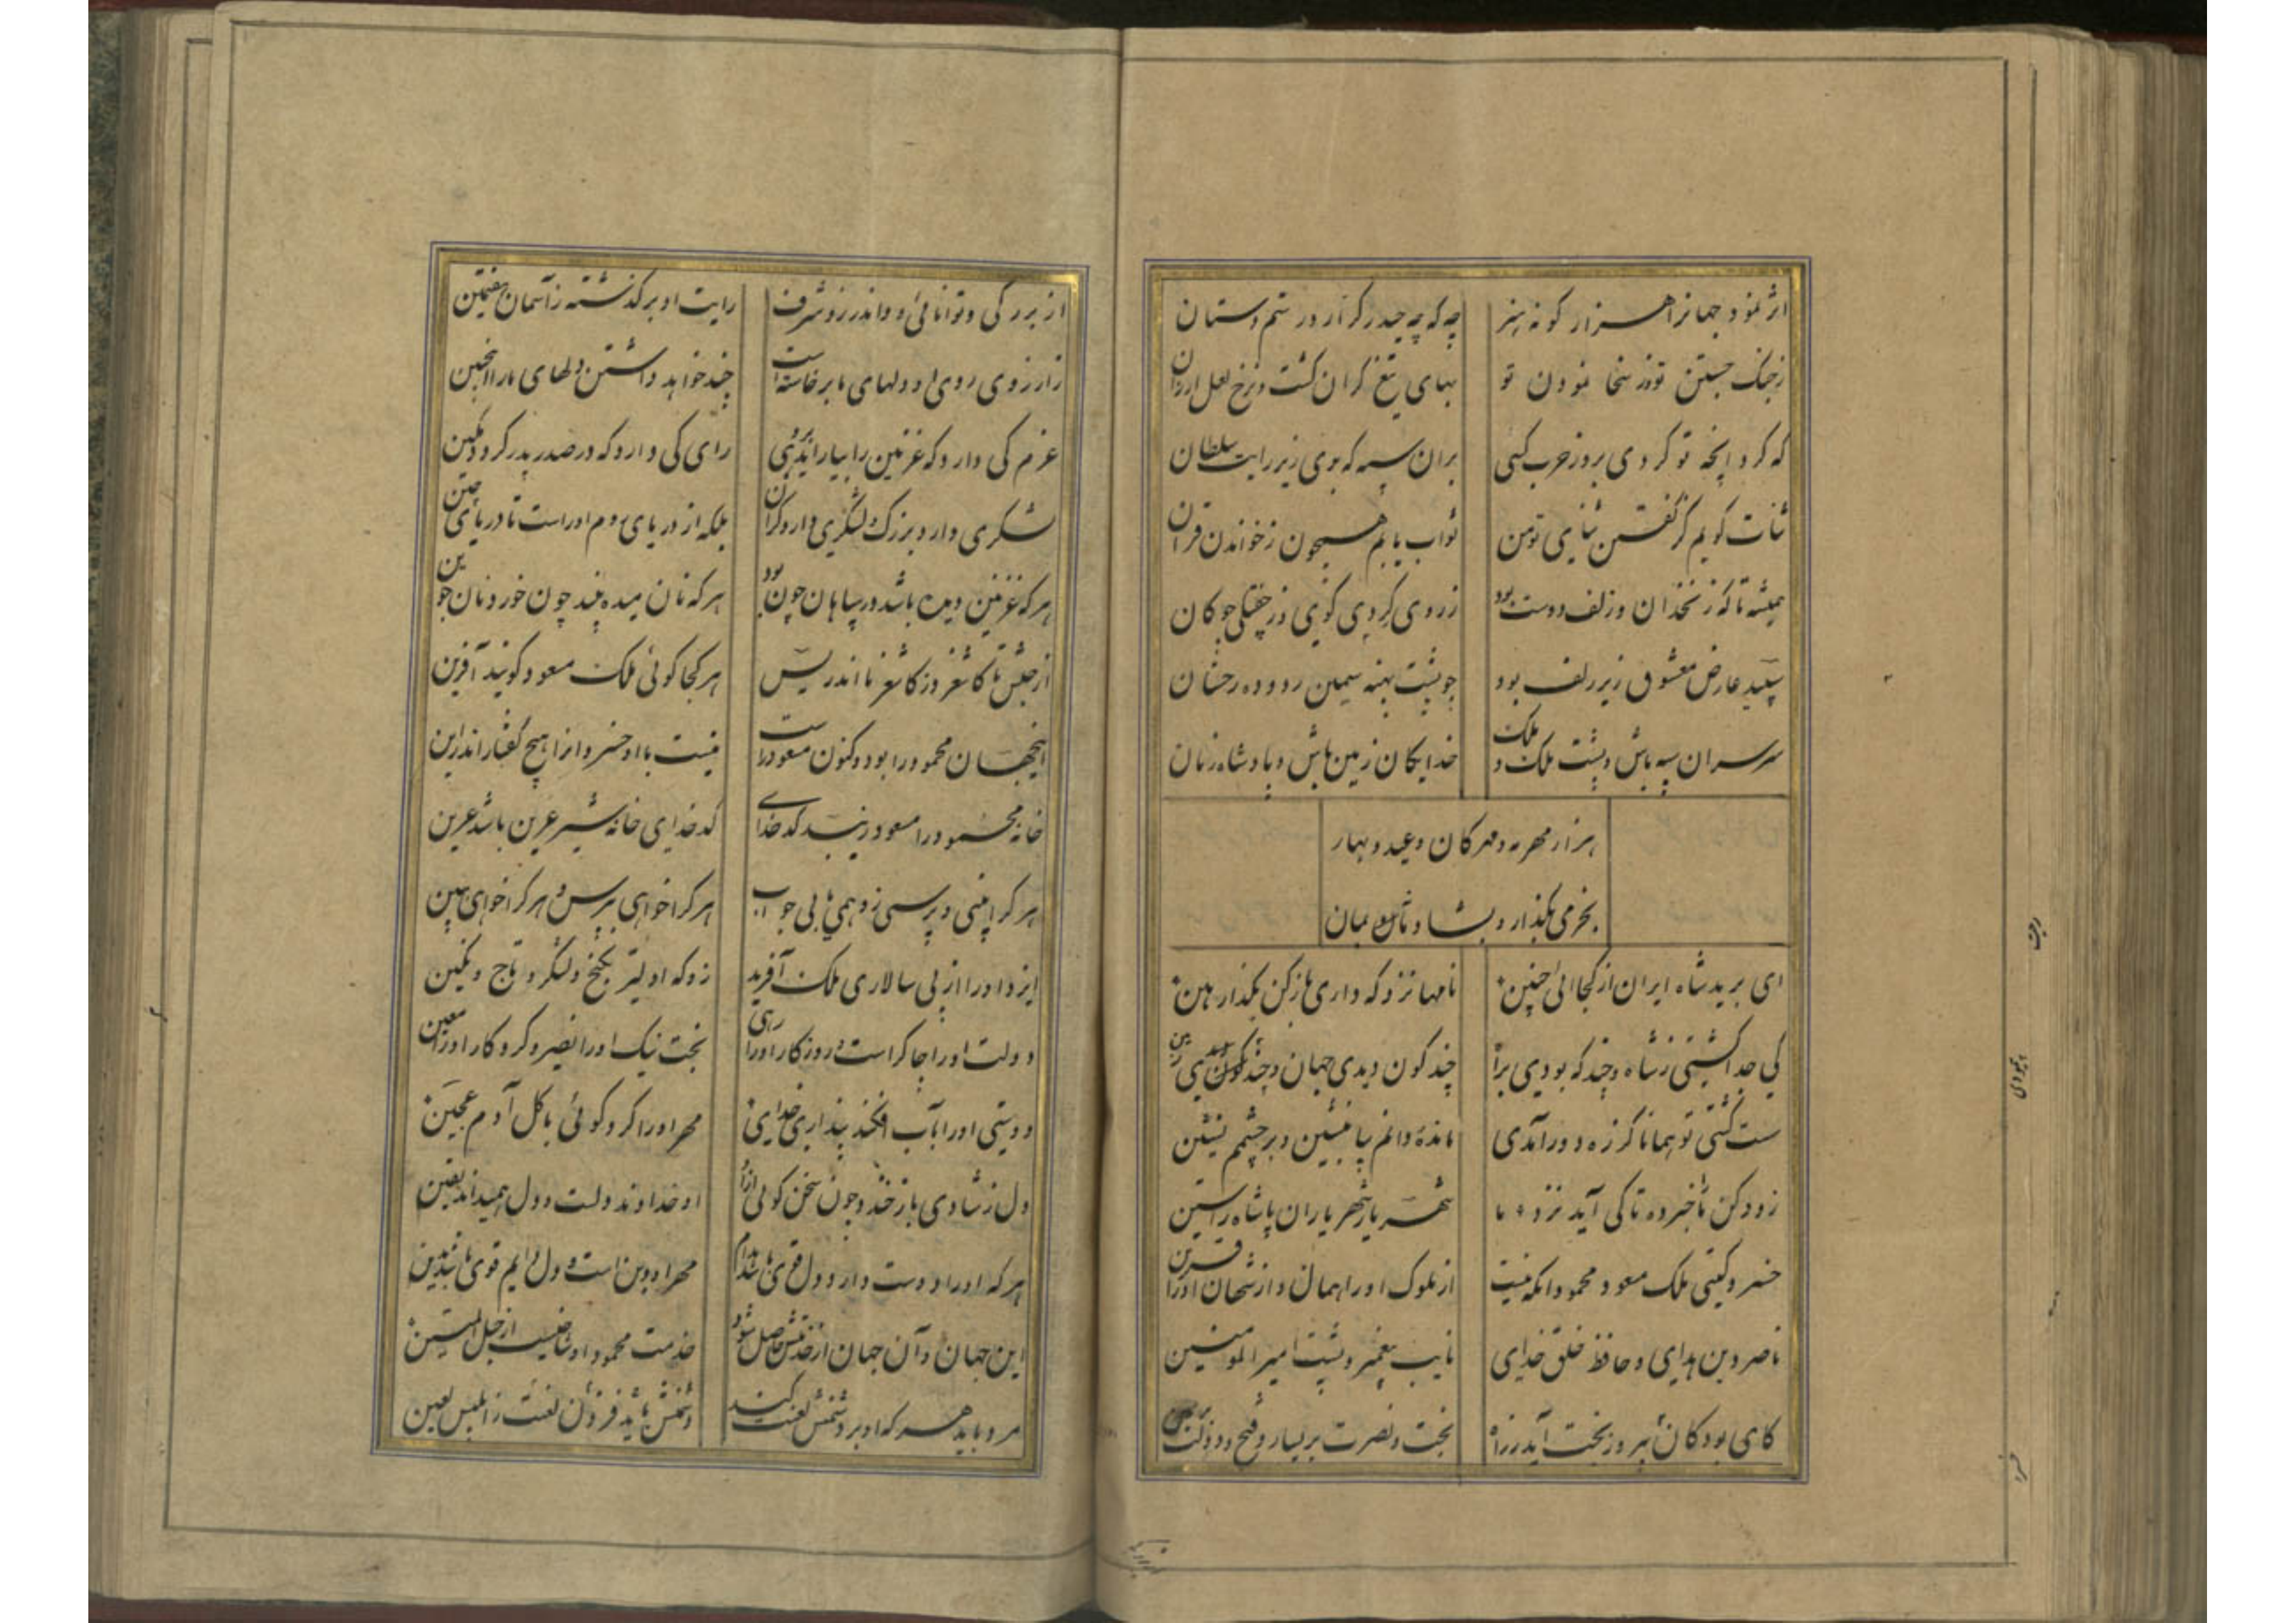 اثر نمود جهانرا هزار گونه هنر
چه که چه حیدر کرار و رستم دستان
ز جنگ جستن تو وز سخا نمودن تو
بهای تیغ گران گشت و نرخ لعل ارزان
که کرد انچه تو کردی بروز حرب کنی
بران سپه که بوی زیر رایت سلطان
ثنات گویم کز گفتن ثنای تو من
ثواب یابم همچون ز خواندن قران
همیشه تا که زنخدان و زلف دوست بود
ز روی گردی گوی و ز خفتگی چوگان
سپید عارض معشوق زیر زلف بود
چو پشت پهنه سیمین ردوده رخشان
سر سران سپه باش و پشت ملک و ملک
خدایگان زمین باش و پادشاه زمان
هزار مهرمه و مهرگان و عید و بهار
بخرمی بگذار و بشاد و تامن بمان
ای برید شاه ایران از کجا ائی چنین
نامها نزد که داری باز کن بگذار هین
کی جدا گشتی ز شاه و چند گه بودی براه
چند گون دیدی جهان و چند گون دیدی زمین
سست گشتی تو همانا کز ره دور آمدی
مانده دانم بیا بنشین و بر چشمم نشین
زود کن ما خبر ده تا کی آید نزد ما
شهریار شهریاران پاشاه راستین
خسرو گیتی ملک مسعود محمود انکه نیست
از ملوک او را همال و از شهان او را قرین
ناصر دین هدای و حافظ خلق خدای
نایب پیغمبر و پشت امیر المومنین
کای بود کان بپیروز بخت آید ز راه
بخت و نصرت بر یسار و فتح و دولت بر یمین
از بزرگی و توانائی و اندر زو شرف
رایت او برگذشته ز آسمان هفتمین
زارزوی روی او دلهای ما برخاسته است
چند خواهد داشتن دلهای ما را انچنین
عزم کی دارد که غزنین را بیاراید بروی
رای کی دارد که در صدر پدر گردد مکین
لشکری دارد بزرگ و لشکری دارد گران
بلکه از دریای روم اوراست تا دریای چین
هر که غزنین دیده باشد در سپاهان چون بود
هر که نان میده بیند چون خورد نان جوین
از حبش تا کاشغر وز کاشغر تا اندریس
هر کجا گوئی ملک مسعود گویند آفرین
اینجهان محمود را بود و کنون مسعود راست
نیست با او خسروانرا هیچ گفتار اندرین
خانه محمود را مسعود زیبد کدخدای
کدخدای خانه شیر عرین باشد عرین
هر کرا بینی و پرسی زو همی یابی جواب
هر کرا خواهی بپرس و هر کرا خواهی ببین
ایزد او را از پی سالاری ملک آفرید
زو که اولیتر بگنج و لشکر و تاج و نگین
دولت او را چاکر است و روزگار او را رهی
بخت نیک او را نصیر و کردگار او را معین
دوستی او را باب افکند پنداری خدای
مهر او را کرد گوئی با گل آدم عجین
دل ز شادی باز خندد چون سخن گوئی ازو
او خداوند دلست و دل همیداند یقین
هر که او را دوست دارد دل قوی باشد مدام
مهر او دین است و دل دایم قوی باشد بدین
این جهان و آن جهان از خدمتش حاصل شود
خدمت محمود او شاخیست از حبل المتین
مرد باید هر که او بر دشمنش لعنت کند
دشمنش باید فزون لعنت ز ابلیس لعین